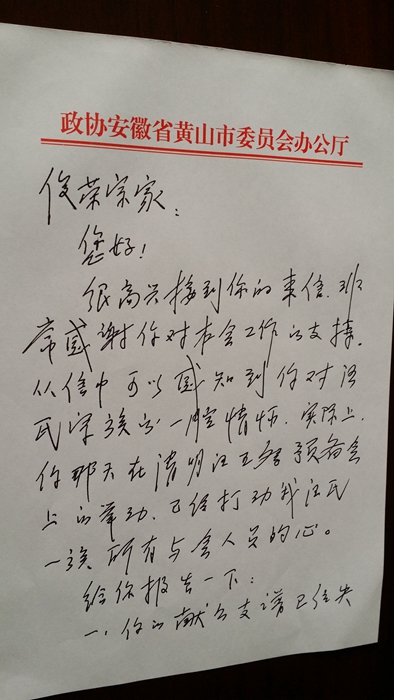 政协安徽省黄山市委员会办公厅
俊荣宗家：
您好！
很高兴接到你的来信，非
常感谢你对本会工作的支持。
从信中可以感知到你对汪
氏宗族的一腔情怀。实际上，
你那天在清明汪王祭预备会
上的举动，已经打动我汪氏
一族所有与会人员的心。
给你报告一下：
一、你的献公支谱已经失